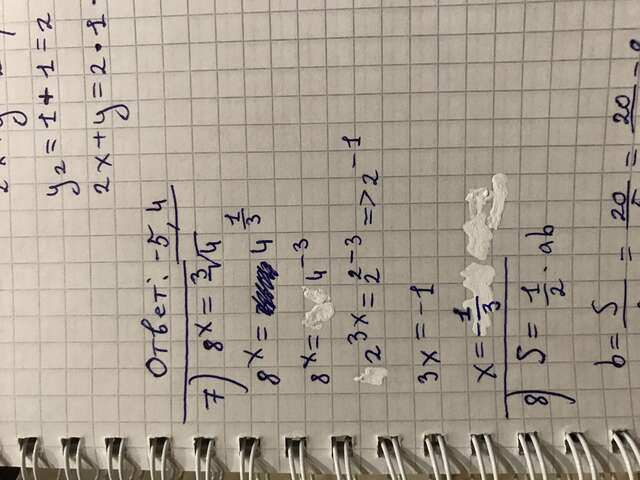 y₂ = 1 + 1 = 2
2x + y = 2 · 1
Ответ: -5, 4
7) 8ˣ = ∛4
8ˣ = 4^(1/3)
8ˣ = 4⁻³
2³ˣ = 2^(2-3) => 2⁻¹
3x = -1
x = -1/3
8) S = 1/2 · ab
b = S = 20 = 20